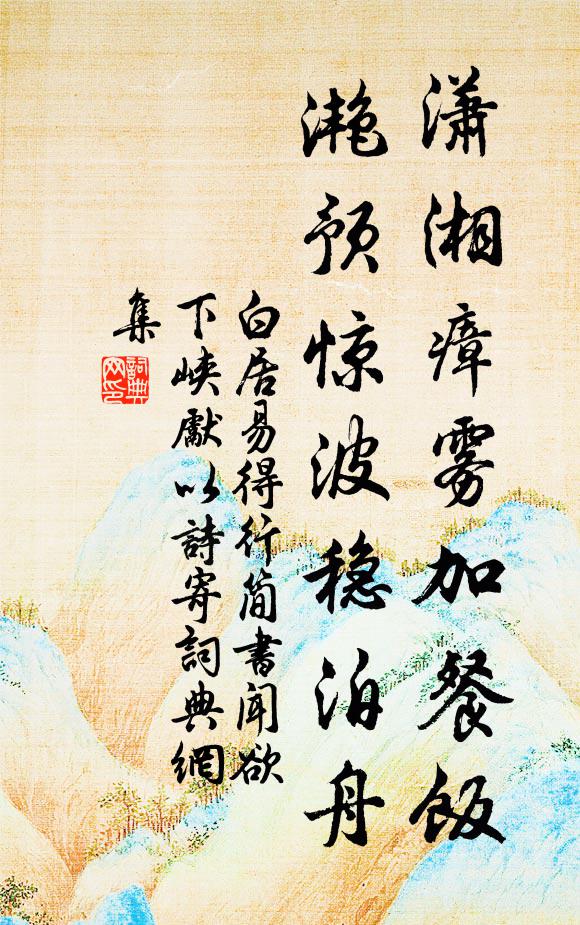 潇湘瘴雾加餐饭
滟预惊波稳泊舟
白居易得行简书闻欲
下峡獻以詩寄詞典網
集
詞典
网印